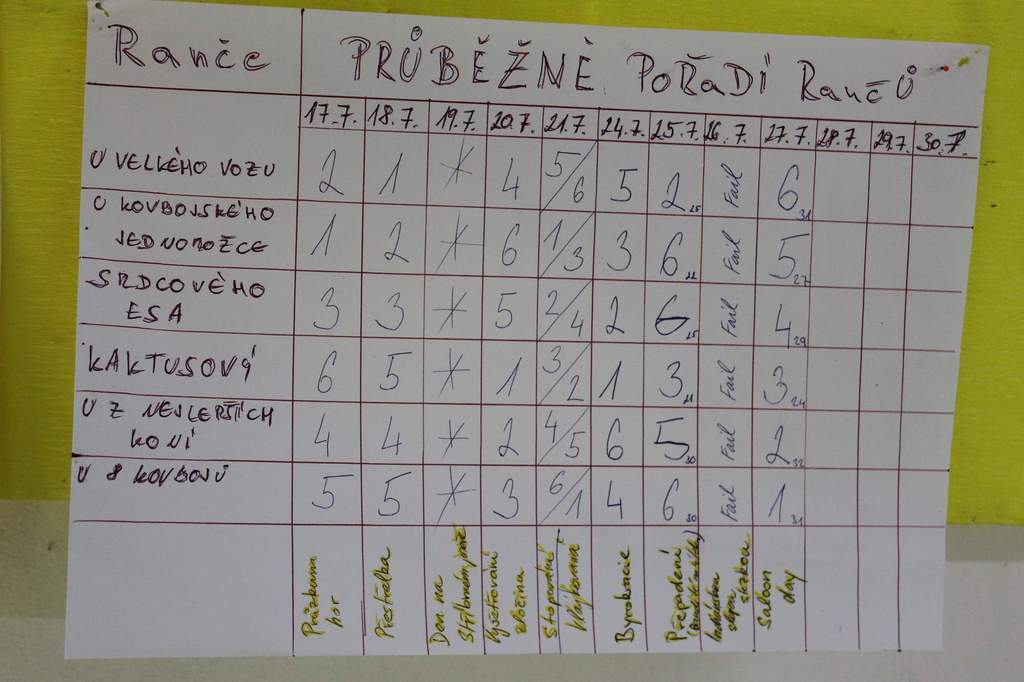 Ranče PRŮBĚŽNÉ POŘADÍ RančŮ
17.7. 18.7. 19.7. 20.7. 21.7. 24.7. 25.7. 26.7. 27.7. 28.7. 29.7. 30.7.
U VELKÉHO VOZU 2 1 * 4 5/6 5 2 25 Fail 6 31
U KOVBOJSKÉHO
JEDNONOŽCE 1 2 * 6 1/3 3 6 22 Fail 5 27
SRDCOVÉHO
ESA 3 3 * 5 2/4 2 6 25 Fail 4 29
KAKTUSOVÝ 6 5 * 1 3/2 1 3 21 Fail 3 24
U Z NEJLEPŠÍCH
KONÍ 4 4 * 2 4/5 6 5 30 Fail 2 32
U 8 KOVBOJŮ 5 5 * 3 6/1 4 6 30 Fail 1 31
Průzkum
hor
Přestřelka
Den na
Vyšetřování
zločinu
Stopování
Byrokracie
Přepadení
stezkou
Saloon
day